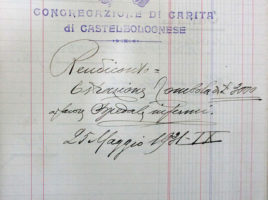 CONGREGAZIONE DI CARITA'
di CASTELBOLOGNESE
Rendiconto =
Estrazione Tombola di £. 3000
a favore Ospedale infermi.
25 Maggio 1931 - IX